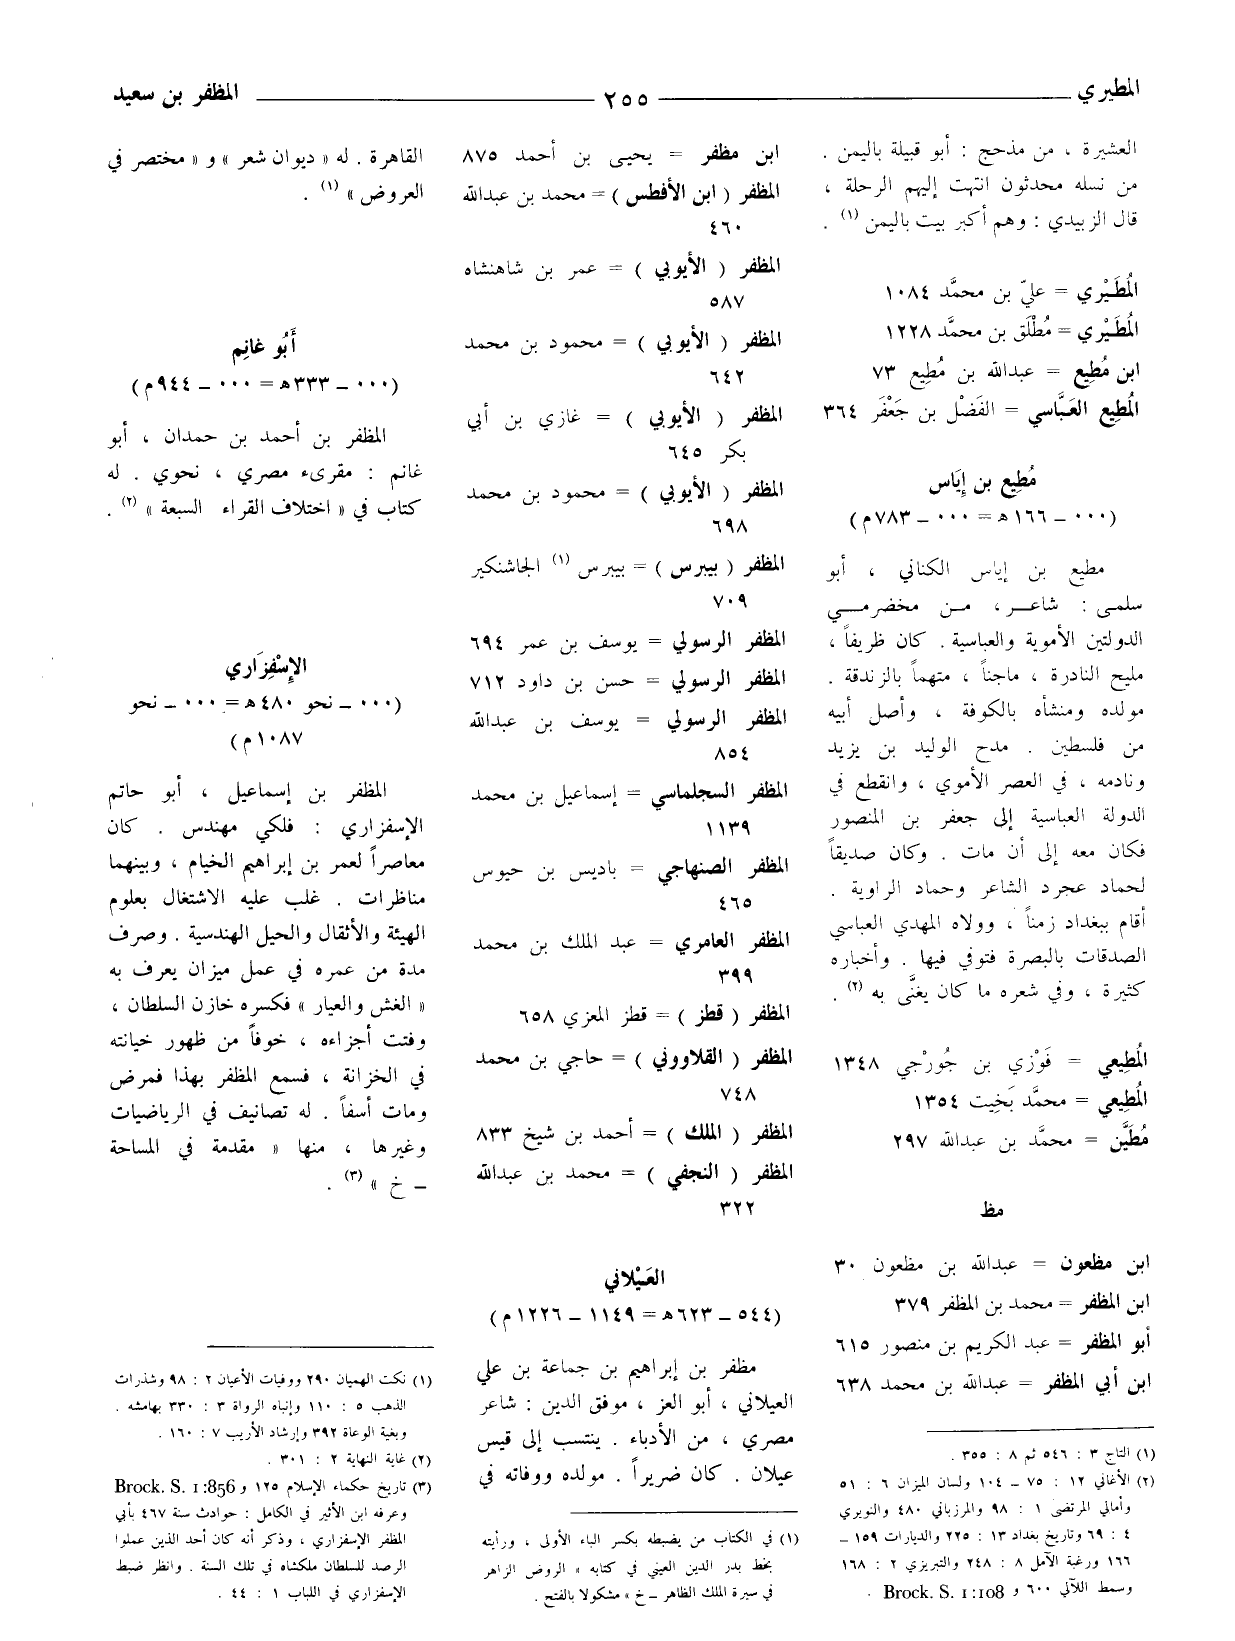 المطيري ــــــ ٢٥٥ ــــــ المظفر بن سعيد
العشيرة ، من مذحج : أبو قبيلة باليمن .
من نسله محدثون انتهت إليهم الرحلة ،
قال الزبيدي : وهم أكبر بيت باليمن (١) .
المُطَيْري = عليّ بن محمَّد ١٠٨٤
المُطَيْري = مُطْلَق بن محمَّد ١٢٢٨
ابن مُطِيع = عبدالله بن مُطِيع ٧٣
المُطِيع العَبَّاسي = الفَضْل بن جَعْفَر ٣٦٤
مُطِيع بن إيَاس
(٠٠٠ – ١٦٦ ﻫ = ٠٠٠ – ٧٨٣م)
مطيع بن إياس الكناني ، أبو
سلمى : شاعر ، من مخضرمي
الدولتين الأموية والعباسية . كان ظريفاً ،
مليح النادرة ، ماجناً ، متهماً بالزندقة .
مولده ومنشأه بالكوفة ، وأصل أبيه
من فلسطين . مدح الوليد بن يزيد
ونادمه ، في العصر الأموي ، وانقطع في
الدولة العباسية إلى جعفر بن المنصور
فكان معه إلى أن مات . وكان صديقاً
لحماد عجرد الشاعر وحماد الراوية .
أقام ببغداد زمناً ، وولاه المهدي العباسي
الصدقات بالبصرة فتوفي فيها . وأخباره
كثيرة ، وفي شعره ما كان يغنَّى به (٢) .
المُطِيعي = فَوْزي بن جُورْجي ١٣٤٨
المُطِيعي = محمَّد بَخِيت ١٣٥٤
مُطَيَّن = محمَّد بن عبدالله ٢٩٧
مظ
ابن مظعون = عبدالله بن مظعون ٣٠
ابن المظفر = محمد بن المظفر ٣٧٩
أبو المظفر = عبد الكريم بن منصور ٦١٥
ابن أبي المظفر = عبدالله بن محمد ٦٣٨
(١) التاج ٣ : ٥٤٦ ثم ٨ : ٣٥٥ .
(٢) الأغاني ١٢ : ٧٥ – ١٠٤ ولسان الميزان ٦ : ٥١
وأمالي المرتضى ١ : ٩٨ والمرزباني ٤٨٠ والنويري
٤ : ٦٩ وتاريخ بغداد ١٣ : ٢٢٥ والديارات ١٥٩ –
١٦٦ ورغبة الآمل ٨ : ٢٤٨ والتبريزي ٢ : ١٦٨
وسمط اللآلي ٦٠٠ و Brock. S. 1:108 .
ابن مظفر = يحيى بن أحمد ٨٧٥
المظفر ( ابن الأفطس ) = محمد بن عبدالله
٤٦٠
المظفر ( الأيوبي ) = عمر بن شاهنشاه
٥٨٧
المظفر ( الأيوبي ) = محمود بن محمد
٦٤٢
المظفر ( الأيوبي ) = غازي بن أبي
بكر ٦٤٥
المظفر ( الأيوبي ) = محمود بن محمد
٦٩٨
المظفر ( بيبرس ) = بيبرس (١) الجاشنكير
٧٠٩
المظفر الرسولي = يوسف بن عمر ٦٩٤
المظفر الرسولي = حسن بن داود ٧١٢
المظفر الرسولي = يوسف بن عبدالله
٨٥٤
المظفر السجلماسي = إسماعيل بن محمد
١١٣٩
المظفر الصنهاجي = باديس بن حيوس
٤٦٥
المظفر العامري = عبد الملك بن محمد
٣٩٩
المظفر ( قطز ) = قطز المعزي ٦٥٨
المظفر ( القلاووني ) = حاجي بن محمد
٧٤٨
المظفر ( الملك ) = أحمد بن شيخ ٨٣٣
المظفر ( النجفي ) = محمد بن عبدالله
٣٢٢
العَيْلاني
(٥٤٤ – ٦٢٣ﻫ = ١١٤٩ – ١٢٢٦م)
مظفر بن إبراهيم بن جماعة بن علي
العيلاني ، أبو العز ، موفق الدين : شاعر
مصري ، من الأدباء . ينتسب إلى قيس
عيلان . كان ضريراً . مولده ووفاته في
(١) في الكتاب من يضبطه بكسر الباء الأولى ، ورأيته
بخط بدر الدين العيني في كتابه « الروض الزاهر
في سيرة الملك الظاهر – خ » مشكولا بالفتح .
القاهرة . له « ديوان شعر » و « مختصر في
العروض » (١) .
أَبُو غانِم
(٠٠٠ – ٣٣٣ﻫ = ٠٠٠ – ٩٤٤م)
المظفر بن أحمد بن حمدان ، أبو
غانم : مقرىء مصري ، نحوي . له
كتاب في « اختلاف القراء السبعة » (٢) .
الإسْفِزَاري
(٠٠٠ – نحو ٤٨٠ﻫ = ٠٠٠ – نحو
١٠٨٧م)
المظفر بن إسماعيل ، أبو حاتم
الإسفزاري : فلكي مهندس . كان
معاصراً لعمر بن إبراهيم الخيام ، وبينهما
مناظرات . غلب عليه الاشتغال بعلوم
الهيئة والأثقال والحيل الهندسية . وصرف
مدة من عمره في عمل ميزان يعرف به
« الغش والعيار » فكسره خازن السلطان ،
وفتت أجزاءه ، خوفاً من ظهور خيانته
في الخزانة ، فسمع المظفر بهذا فمرض
ومات أسفاً . له تصانيف في الرياضيات
وغيرها ، منها « مقدمة في المساحة
– خ » (٣) .
(١) نكت الهميان ٢٩٠ ووفيات الأعيان ٢ : ٩٨ وشذرات
الذهب ٥ : ١١٠ وإنباه الرواة ٣ : ٣٣٠ بهامشه .
وبغية الوعاة ٣٩٢ وإرشاد الأريب ٧ : ١٦٠ .
(٢) غاية النهاية ٢ : ٣٠١ .
(٣) تاريخ حكماء الإسلام ١٢٥ و Brock. S. 1:856
وعرفه ابن الأثير في الكامل : حوادث سنة ٤٦٧ بأبي
المظفر الإسفزاري ، وذكر أنه كان أحد الذين عملوا
الرصد للسلطان ملكشاه في تلك السنة . وانظر ضبط
الإسفزاري في اللباب ١ : ٤٤ .